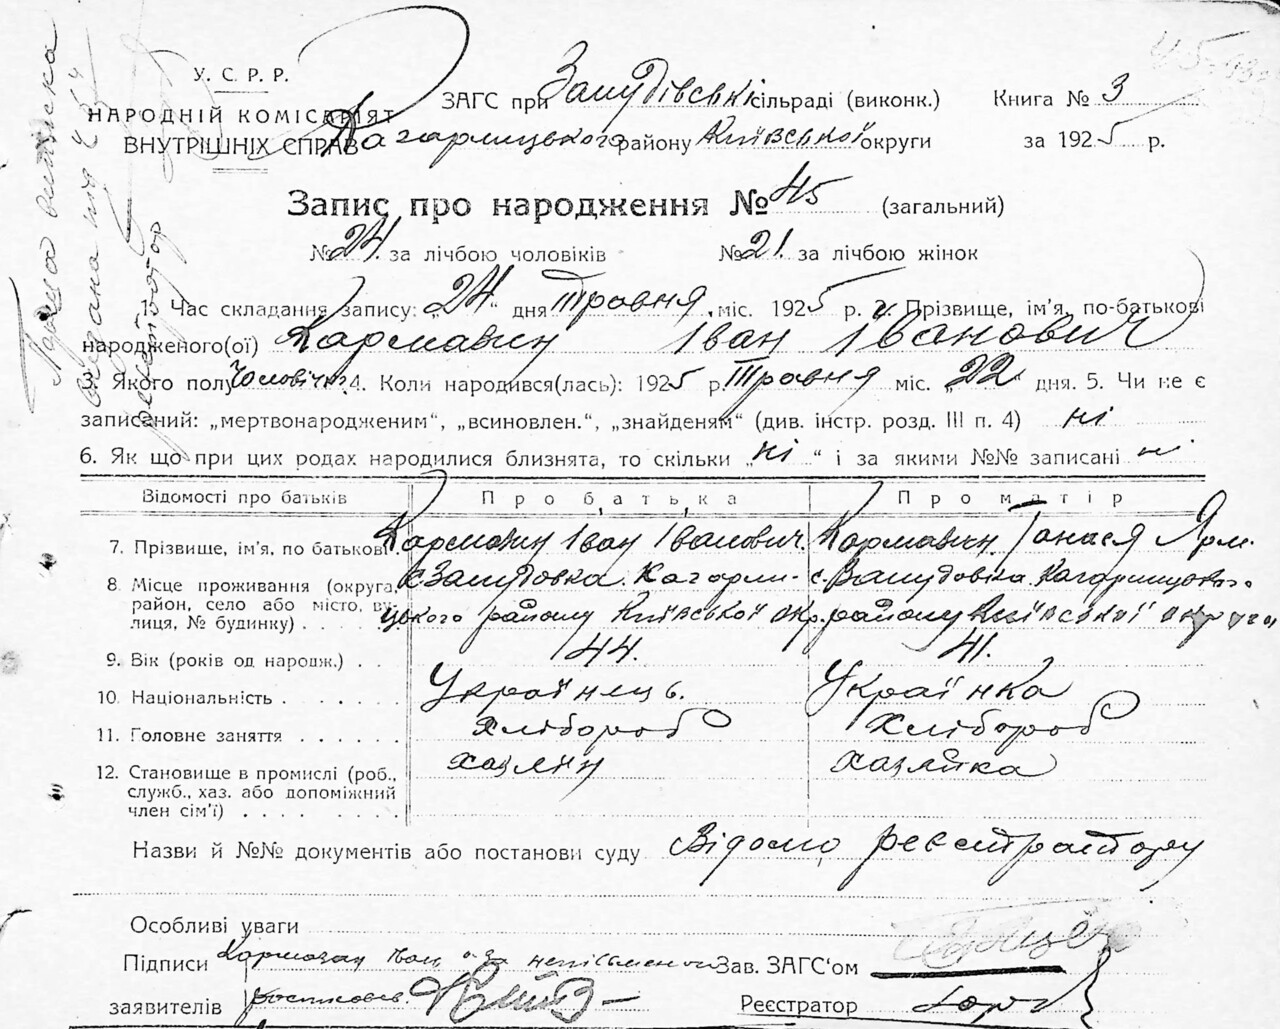 У. С. Р. Р.
НАРОДНІЙ КОМІСАРІЯТ
ВНУТРІШНІХ СПРАВ
ЗАГС при Запудівські сільраді (виконк.) Книга № 3
Кагарлицького району Київської округи за 1925 р.
Запис про народження № 45 (загальний)
№ 24. за лічбою чоловіків № 21. за лічбою жінок
1. Час складання запису: „24“ дня Травня міс. 1925 р. 2. Прізвище, ім’я, по-батькові
народженого(ої) Кармазин Іван Іванович
3. Якого полу Чоловічого 4. Коли народився(лась): 1925 р. Травня міс. „22“ дня. 5. Чи не є
записаний: „мертвонародженим“, „всиновлен.“, „знайденям“ (див. інстр. розд. III п. 4) ні
6. Як що при цих родах народилися близнята, то скільки „ні“ і за якими №№ записані ні
Відомості про батьків Про батька Про матір
7. Прізвище, ім’я, по батькові Кармазин Іван Іванович. Кармазин Танася Ярм.
8. Місце проживання (округа, с. Запудовка. Кагарли- с. Запудовка Кагарлицького
район, село або місто, ву-
лиця, № будинку) цького району Київської окр. району Київської округи
9. Вік (років од народж.) 44. 41.
10. Національність Українець. Українка
11. Головне заняття Хлібороб Хлібороб
12. Становище в промислі (роб., хазяїн хазяйка
служб., хаз. або допоміжний
член сім’ї)
Назви й №№ документів або постанови суду Відомо реєстратору
Особливі уваги
Підписи Кармазин Іван а за неписьменого Зав. ЗАГС‘ом
заявителів росписовся Реєстратор